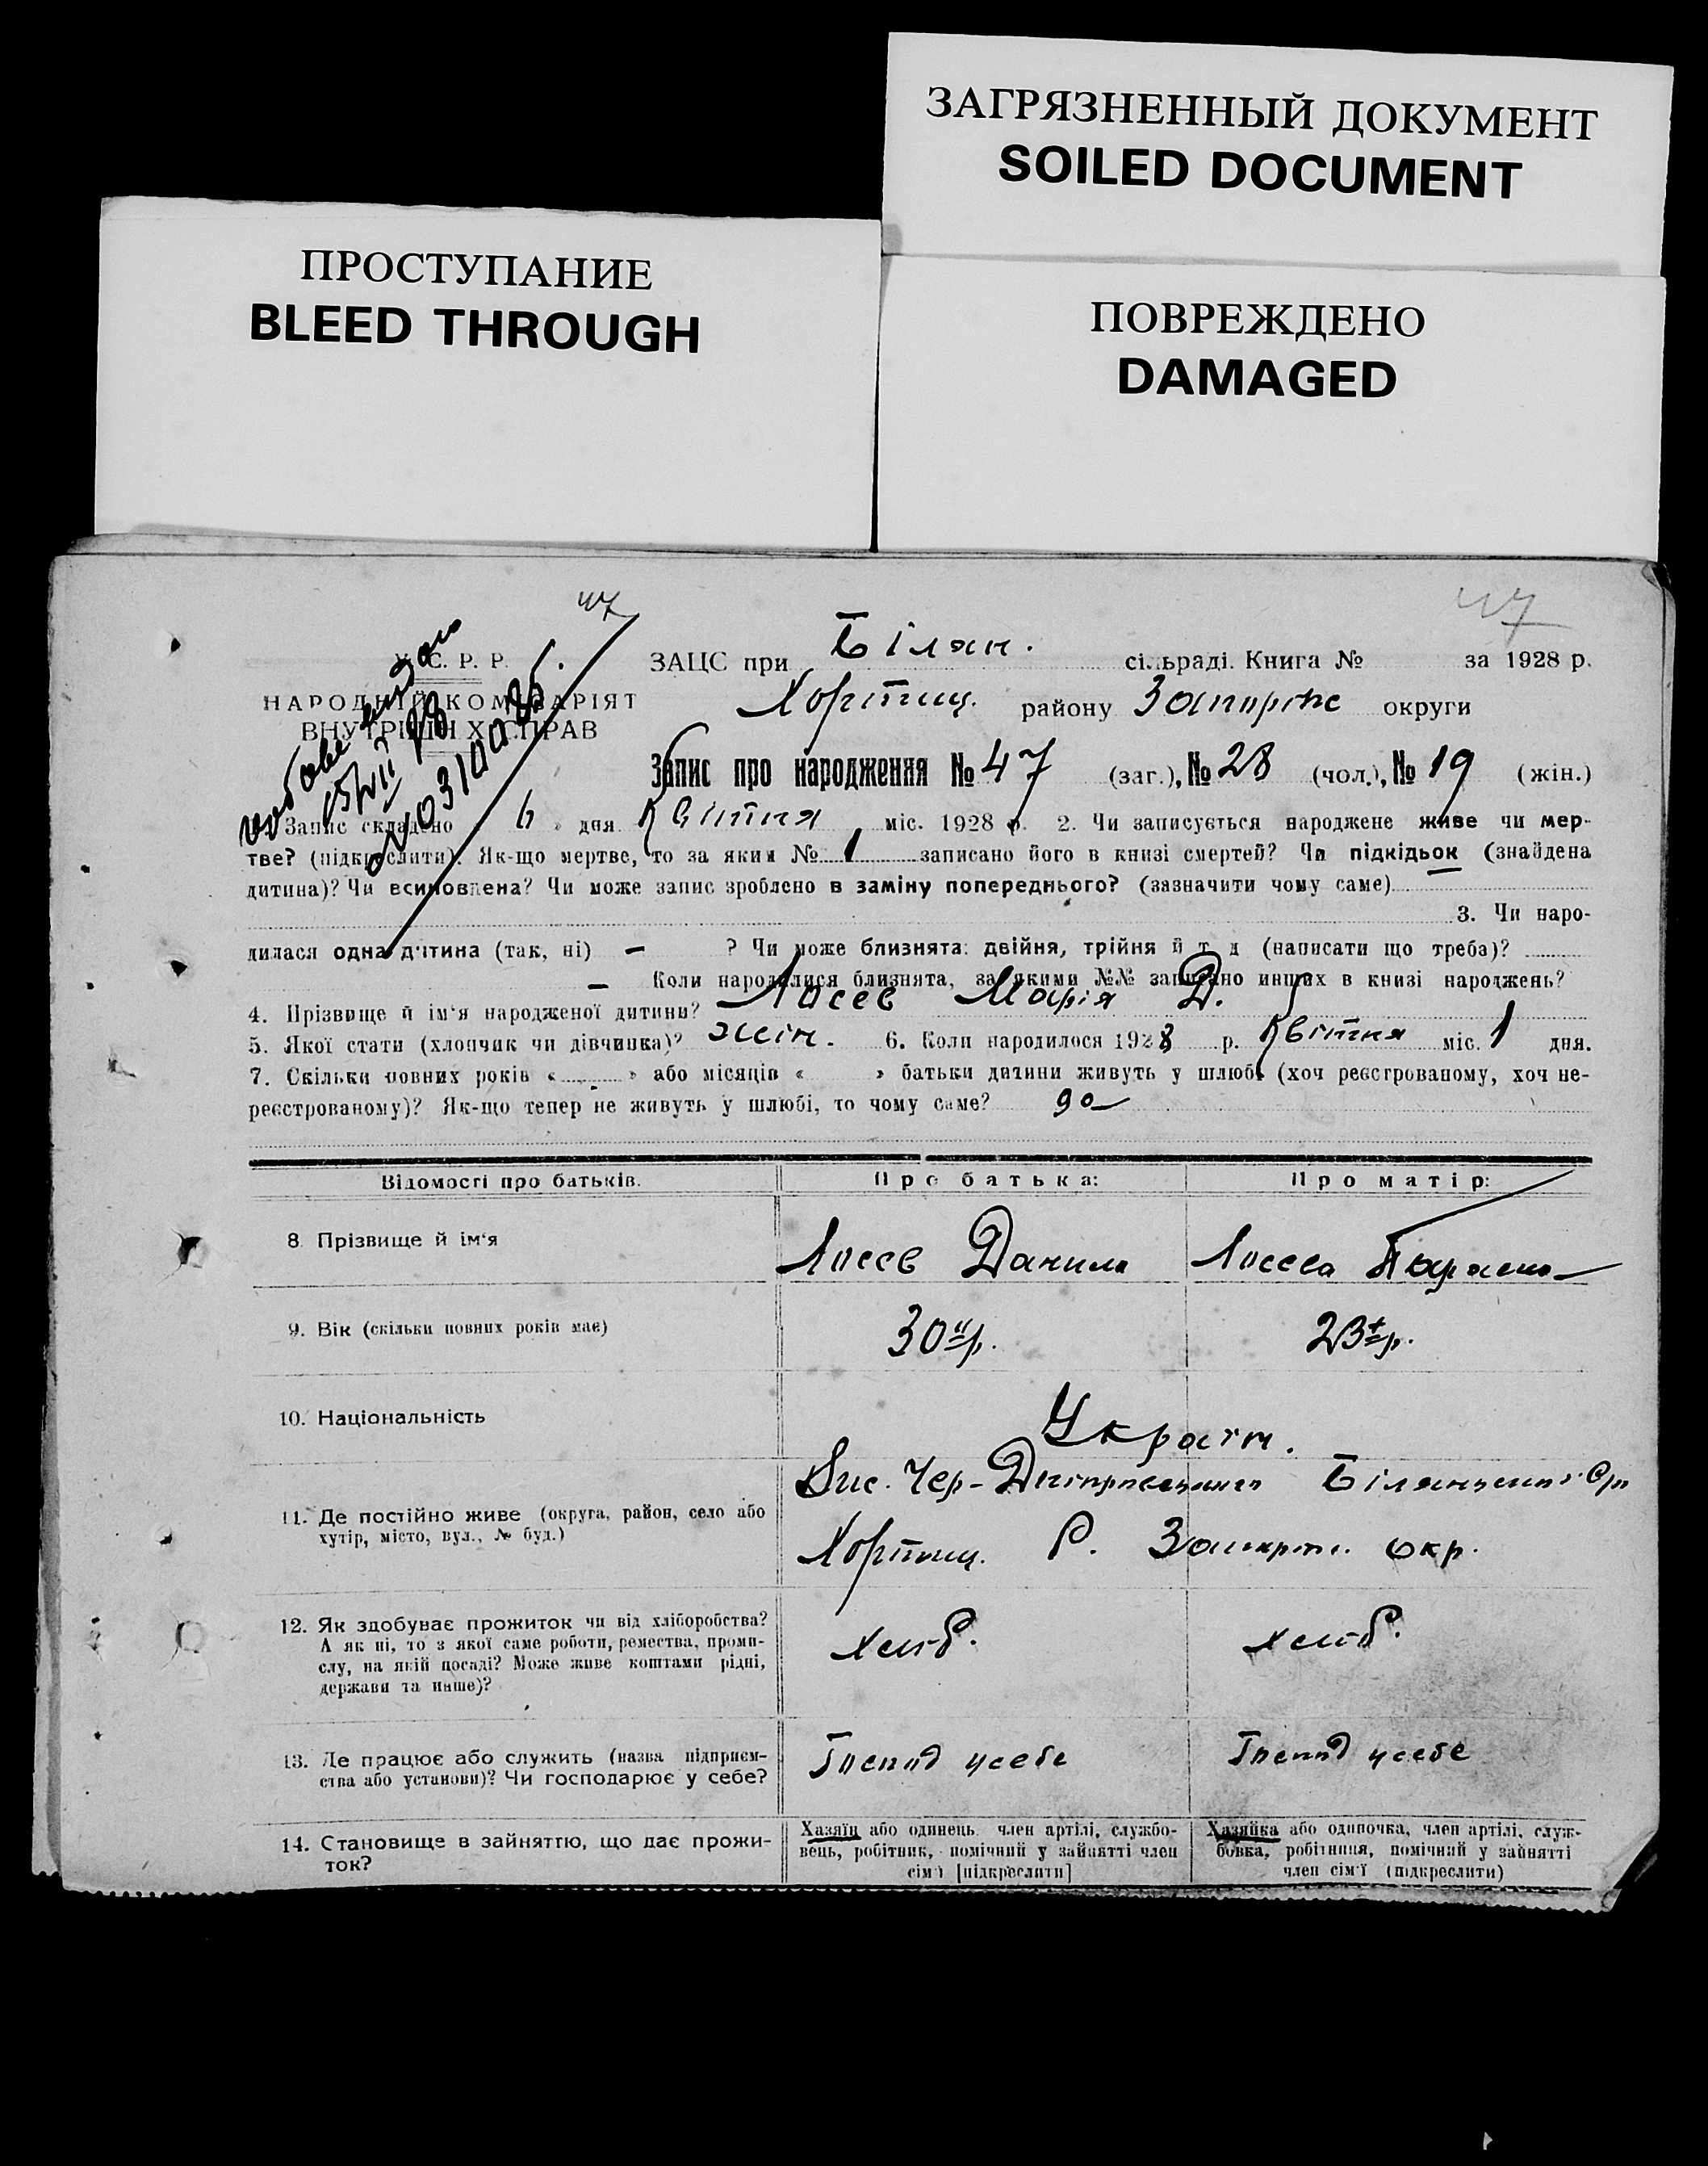 ЗАГРЯЗНЕННЫЙ ДОКУМЕНТ
SOILED DOCUMENT
ПРОСТУПАНИЕ
BLEED THROUGH
ПОВРЕЖДЕНО
DAMAGED
47
47
У. С. Р. Р.
НАРОДНІЙ КОМІСАРІЯТ
ВНУТРІШНІХ СПРАВ
ЗАЦС при Білян. сільраді. Книга № за 1928 р.
Хортиц. району округи
Запис про народження № 47 (заг.), № 28 (чол.), № 19 (жін.)
1. Запис складено 6 » дня Квітня міс. 1928 р. 2. Чи записується народжене живе чи мер-
тве? (підкреслити). Як-що мертве, то за яким № записано його в книзі смертей? Чи підкідьок (знайдена
дитина)? Чи всиновлена? Чи може запис зроблено в заміну попереднього? (зазначити чому саме)
3. Чи наро-
дилася одна дитина (так, ні) — ? Чи може близнята: двійня, трійня й т. д (написати що треба)?
— Коли народилися близнята, за якими №№ записано инших в книзі народжень?
4. Прізвище й ім'я народженої дитини? Лосев Марія Д.
5. Якої стати (хлопчик чи дівчинка)? жін. 6. Коли народилося 1928 р. Квітня міс. 1 дня.
7. Скільки повних років « » або місяців « » батьки дитини живуть у шлюбі (хоч реєстрованому, хоч не-
реєстрованому)? Як-що тепер не живуть у шлюбі, то чому саме?
Відомості про батьків. Про батька: Про матір:
8. Прізвище й ім'я Лосев Данило Лосева Параска
9. Вік (скільки повних років має) 30 р. 23 р.
10. Національність Україн.
11. Де постійно живе (округа, район, село або
хутір, місто, вул., № буд.)
Хортиц. Р. окр.
12. Як здобуває прожиток чи від хліборобства?
А як ні, то з якої саме роботи, ремества, проми-
слу, на якій посаді? Може живе коштами рідні,
держави та инше)?
13. Де працює або служить (назва підприєм-
ства або установи)? Чи господарює у себе?
Господ усебе Господ усебе
14. Становище в зайняттю, що дає прожи-
ток?
Хазяїн або одинець член артілі, службо-
вець, робітник, помічний у зайнятті член
сім'ї [підкреслити]
Хазяйка або одиночка, член артілі, служ-
бовка, робітниця, помічний у зайнятті
член сім'ї (підкреслити)